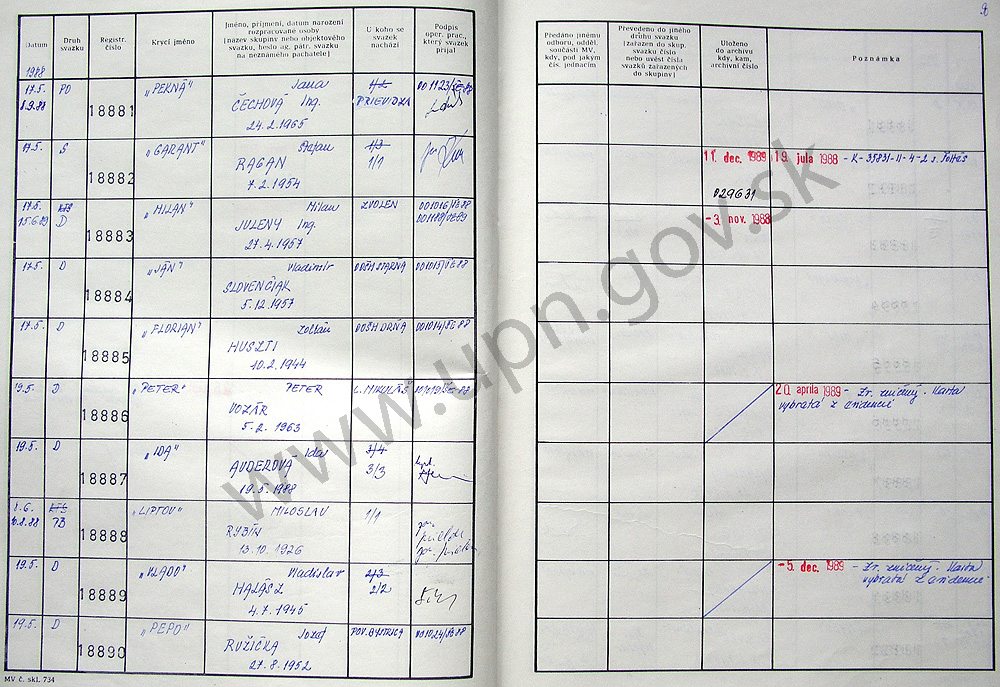 Datum
Druh svazku
Registr. číslo
Krycí jméno
Jméno, příjmení, datum narození rozpracované osoby
[název skupiny nebo objektového svazku, heslo ag. pátr. svazku na neznámého pachatele]
U koho se svazek nachází
Podpis oper. prac., který svazek přijal
Předáno jinému odboru, odděl. součásti MV, kdy, pod jakým čís. jednacím
Převedeno do jiného druhu svazku [zařazen do skup. svazku číslo nebo uvést čísla svazků zařazených do skupiny]
Uloženo do archívu kdy, kam, archivní číslo
Poznámka
1988
17.5. PO 18881 „PEKNÁ" Jana 1/2
8.9.88 ČECHOVÁ Ing. PRIEVIDZA
24.2.1965
17.5. S 18882 „GARANT" Štefan 1/3
RAGAN 1/1
7.2.1954
11. dec. 1989 19. júla 1988 - K-35831-11-4-2
029631
17.5. 18883 „MILAN" Milan ZVOLEN
15.6.89 D JULENY Ing.
27.4.1957
-3. nov. 1988
17.5. D 18884 „JÁN" Vladimír
SLOVENČIAK
5.12.1957
17.5. D 18885 „FLORIAN" Zoltán
HUSZTI
10.2.1944
19.5. D 18886 „PETER" PETER L. MIKULÁŠ
VOZÁR
5.2.1963
20. apríla 1989 - Zv. zničený. Karta
vybratá z evidencie
19.5. D 18887 „IDA" Ida 3/4
AUDEROVÁ 3/3
19.5.1988
1.6. 18888 „LIPTOV" MILOSLAV 1/1
RYBÍN
13.10.1926
19.5. D 18889 „VLADO" Vladislav 2/3
HALÁSZ 2/2
4.7.1945
-5. dec. 1989 - Zv. zničený. Karta
vybratá z evidencie
19.5. D 18890 „PEPO" Jozef POV. BYSTRICA
RUŽIČKA
27.8.1952
MV č. skl. 734
www.upn.gov.sk